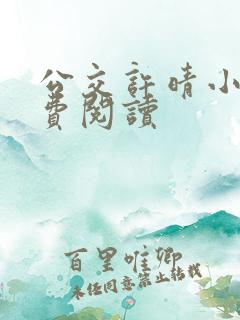 公交許晴小
費閱讀
百里唯卿
未经同意禁止转载